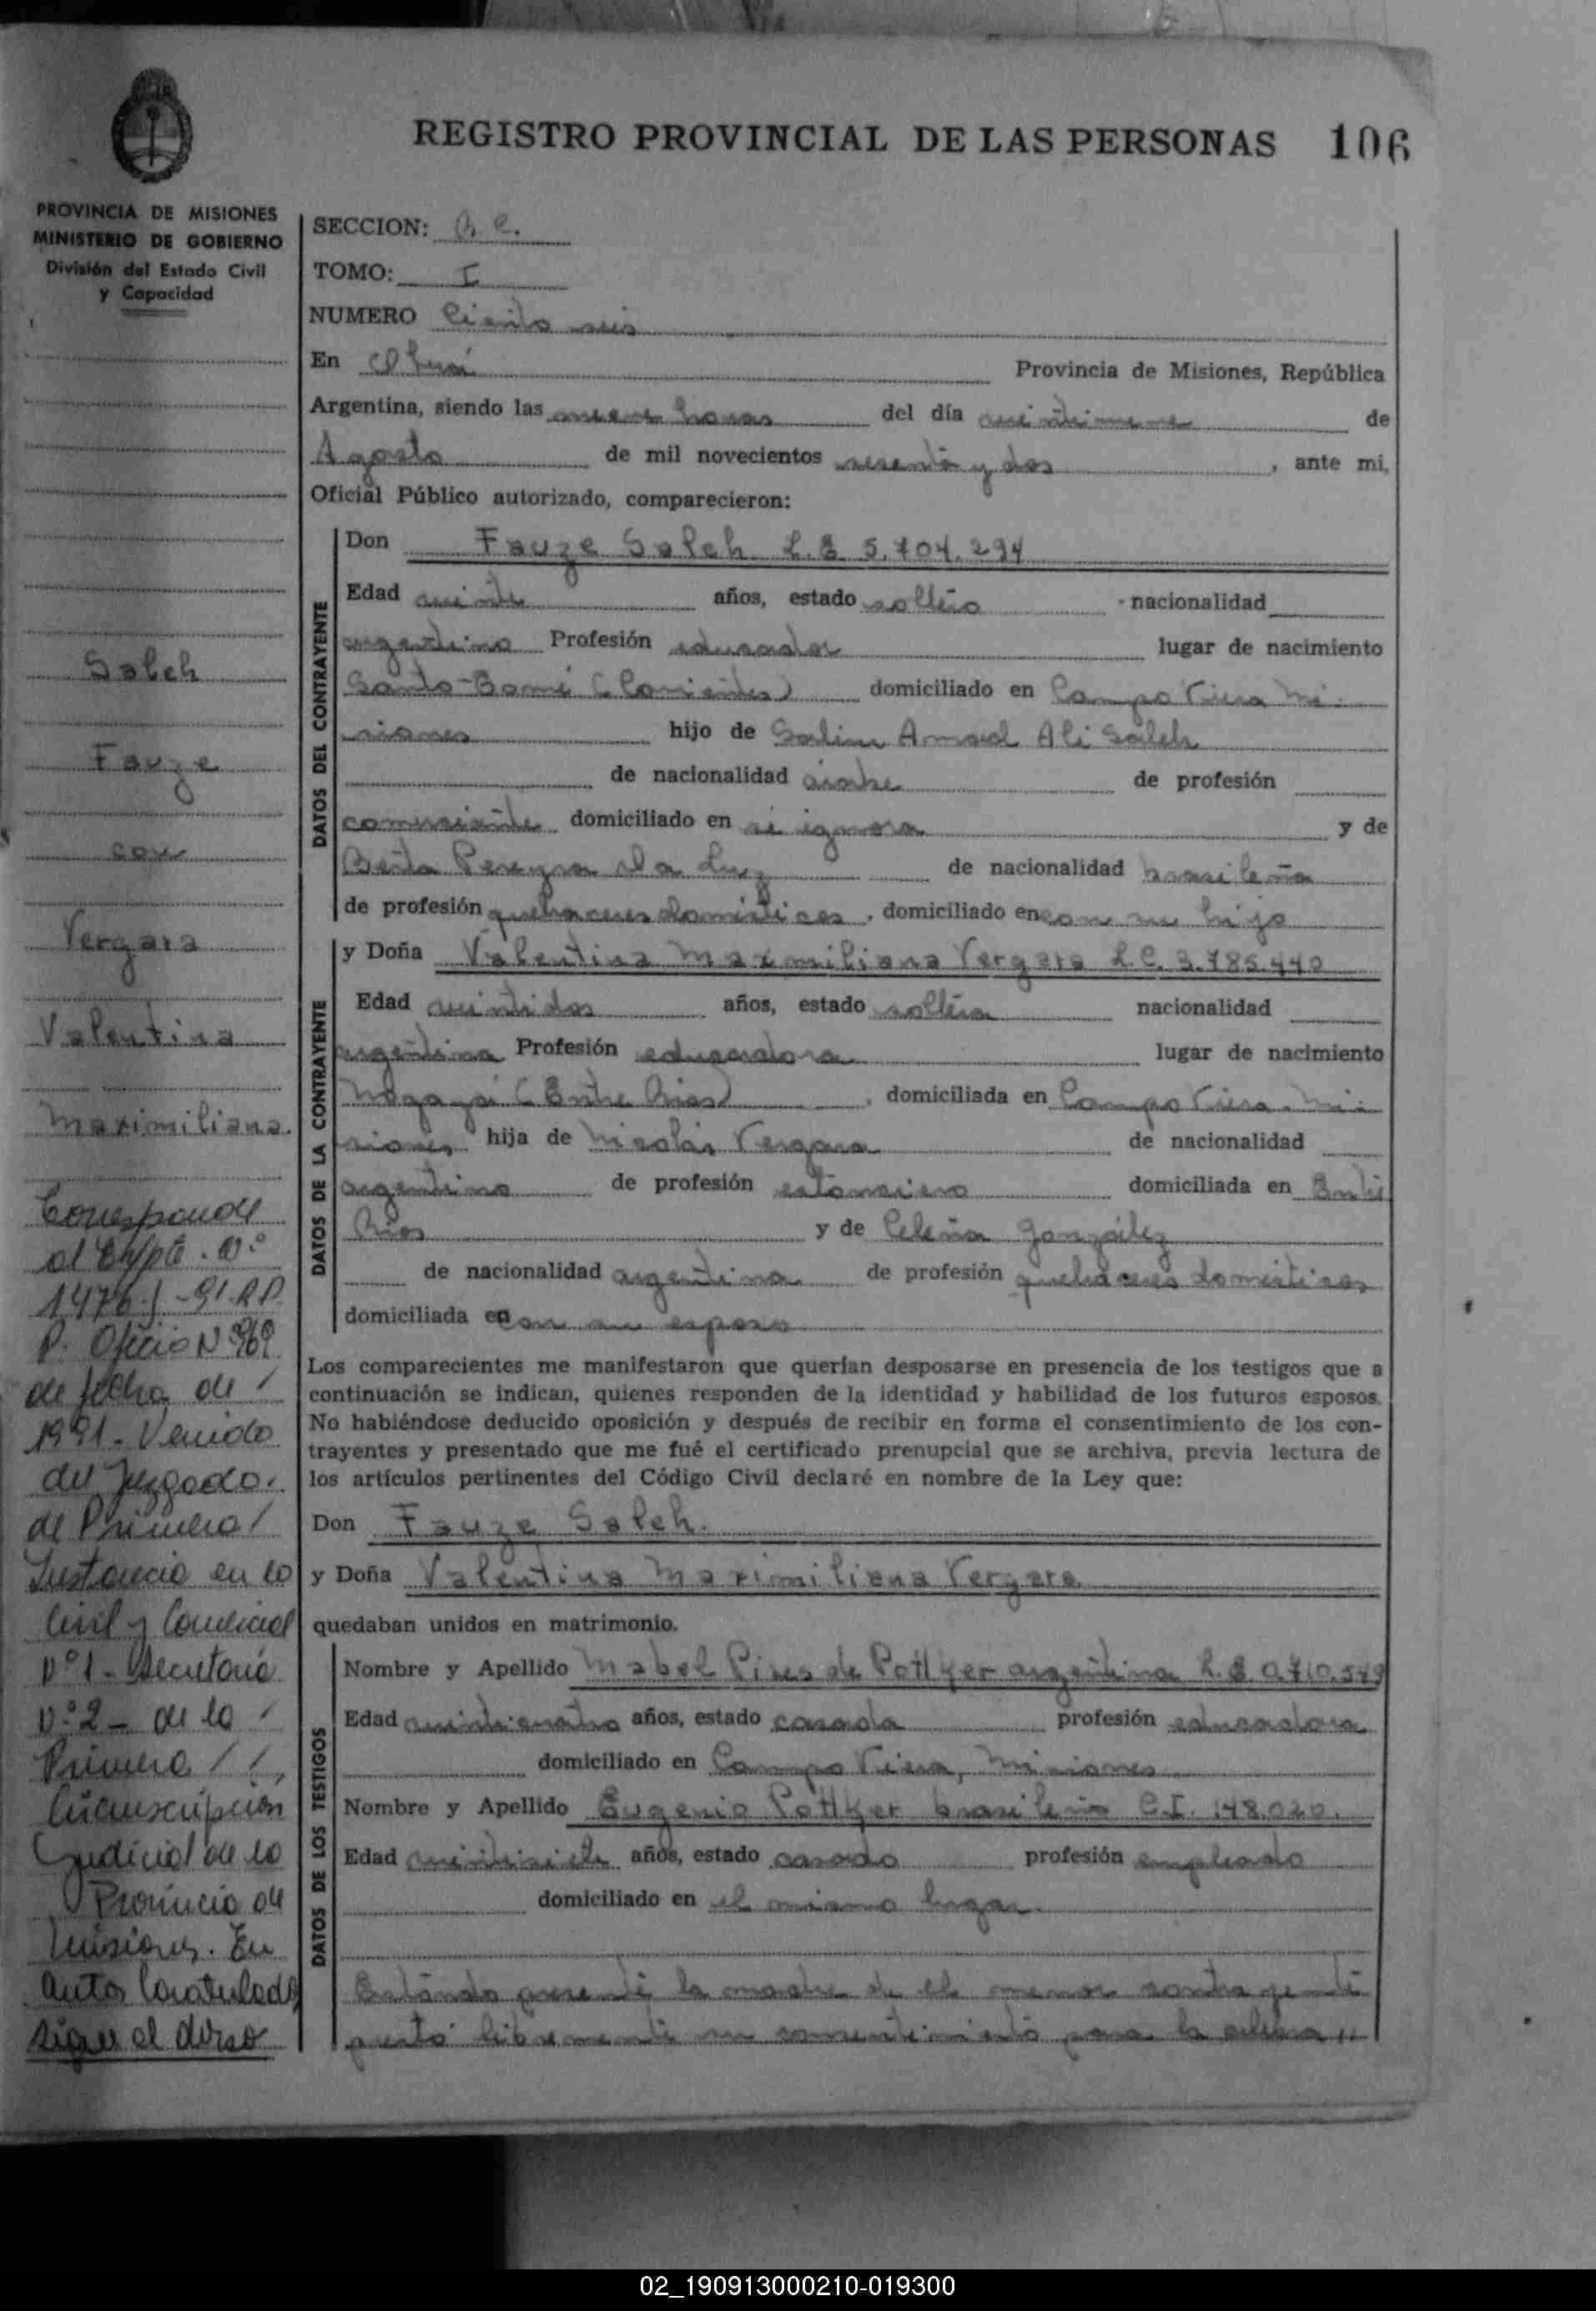 REGISTRO PROVINCIAL DE LAS PERSONAS 106
PROVINCIA DE MISIONES
MINISTERIO DE GOBIERNO
División del Estado Civil
y Capacidad
Saleh
Fauze
con
Vergara
Valentina
Maximiliana.
Corresponde
al Expte. Nº
1476
P. Oficio Nº 969
de fecha de /
1991 - Venido
del Juzgado
de Primera /
Instancia en lo
Civil y Comercial
Nº 1 - Secretaría
Nº 2 - de la /
Primera / /,
Circunscripción
Judicial de la
Provincia de
Misiones. En
autos Caratulado
sigue al dorso
SECCION:
TOMO: I
NUMERO Ciento seis
En Oberá Provincia de Misiones, República
Argentina, siendo las nueve horas del día veintinueve de
Agosto de mil novecientos sesenta y dos, ante mi,
Oficial Público autorizado, comparecieron:
DATOS DEL CONTRAYENTE
Don Fauze Saleh L.E 5.704.294
Edad veinte años, estado soltero - nacionalidad
argentino Profesión educador lugar de nacimiento
Santo Tomé (Corrientes) domiciliado en Campo Viera Mi-
siones hijo de Salim Amad Ali Saleh
de nacionalidad árabe de profesión
comerciante domiciliado en se ignora y de
Berta Pereyra da Luz de nacionalidad brasileña
de profesión quehaceres domésticos, domiciliado en con su hijo
DATOS DE LA CONTRAYENTE
y Doña Valentina Maximiliana Vergara L.C. 3.785.440
Edad veintidos años, estado soltera nacionalidad
argentina Profesión educadora lugar de nacimiento
Nogoyá (Entre Ríos), domiciliada en Campo Viera - Mi-
siones hija de Nicolás Vergara de nacionalidad
argentino de profesión estanciero domiciliada en Entre
Ríos y de González
de nacionalidad argentina de profesión quehaceres domésticos
domiciliada en con su esposo
Los comparecientes me manifestaron que querían desposarse en presencia de los testigos que a
continuación se indican, quienes responden de la identidad y habilidad de los futuros esposos.
No habiéndose deducido oposición y después de recibir en forma el consentimiento de los con-
trayentes y presentado que me fué el certificado prenupcial que se archiva, previa lectura de
los artículos pertinentes del Código Civil declaré en nombre de la Ley que:
Don Fauze Saleh.
y Doña Valentina Maximiliana Vergara.
quedaban unidos en matrimonio.
DATOS DE LOS TESTIGOS
Nombre y Apellido Mabel Pires de Pottker argentina
Edad veinticuatro años, estado casada profesión educadora
domiciliado en Campo Viera, Misiones
Nombre y Apellido Eugenio Pottker brasileño C.I. 148.020.
Edad veintisiete años, estado casado profesión empleado
domiciliado en el mismo lugar.
Estando presente la madre de el menor contrayente
prestó libremente su consentimiento para la celebra //
02_190913000210-019300